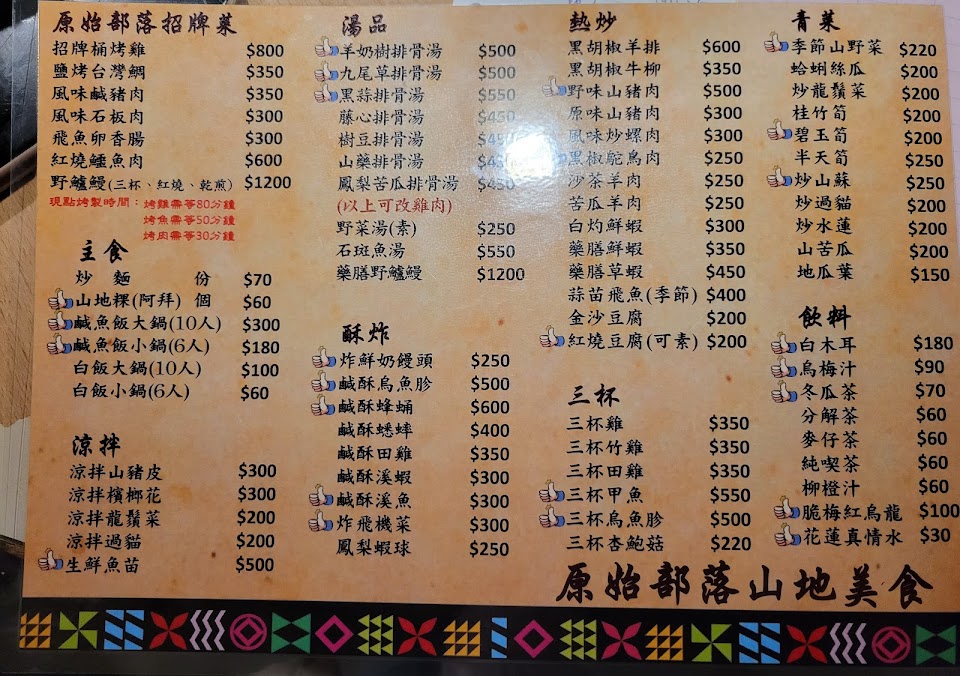 原始部落招牌菜
招牌桶烤雞 $800
鹽烤台灣鯛 $350
風味鹹豬肉 $350
風味石板肉 $300
飛魚卵香腸 $300
紅燒鱷魚肉 $600
野鱸鰻(三杯、紅燒、乾煎) $1200
現點烤製時間：烤雞需等80分鐘
烤魚需等50分鐘
烤肉需等30分鐘
主食
炒麵 份 $70
山地粿(阿拜) 個 $60
鹹魚飯大鍋(10人) $300
鹹魚飯小鍋(6人) $180
白飯大鍋(10人) $100
白飯小鍋(6人) $60
涼拌
涼拌山豬皮 $300
涼拌檳榔花 $300
涼拌龍鬚菜 $200
涼拌過貓 $200
生鮮魚苗 $500
湯品
羊奶樹排骨湯 $500
九尾草排骨湯 $500
黑蒜排骨湯 $550
藤心排骨湯 $450
樹豆排骨湯
山藥排骨湯
鳳梨苦瓜排骨湯 $450
(以上可改雞肉)
野菜湯(素) $250
石斑魚湯 $550
藥膳野鱸鰻 $1200
酥炸
炸鮮奶饅頭 $250
鹹酥烏魚胗 $500
鹹酥蜂蛹 $600
鹹酥蟋蟀 $400
鹹酥田雞 $350
鹹酥溪蝦 $300
鹹酥溪魚 $300
炸飛機菜 $300
鳳梨蝦球 $250
熱炒
黑胡椒羊排 $600
黑胡椒牛柳 $350
野味山豬肉 $500
原味山豬肉 $300
風味炒螺肉 $300
黑椒鴕鳥肉 $250
沙茶羊肉 $250
苦瓜羊肉 $250
白灼鮮蝦 $300
藥膳鮮蝦 $350
藥膳草蝦 $450
蒜苗飛魚(季節) $400
金沙豆腐 $200
紅燒豆腐(可素) $200
三杯
三杯雞 $350
三杯竹雞 $350
三杯田雞 $350
三杯甲魚 $550
三杯烏魚胗 $500
三杯杏鮑菇 $220
青菜
季節山野菜 $220
蛤蜊絲瓜 $200
炒龍鬚菜 $200
桂竹筍 $200
碧玉筍 $200
半天筍 $250
炒山蘇 $250
炒過貓 $200
炒水蓮 $200
山苦瓜 $200
地瓜葉 $150
飲料
白木耳 $180
烏梅汁 $90
冬瓜茶 $70
分解茶 $60
麥仔茶 $60
純喫茶 $60
柳橙汁 $60
脆梅紅烏龍 $100
花蓮真情水 $30
原始部落山地美食